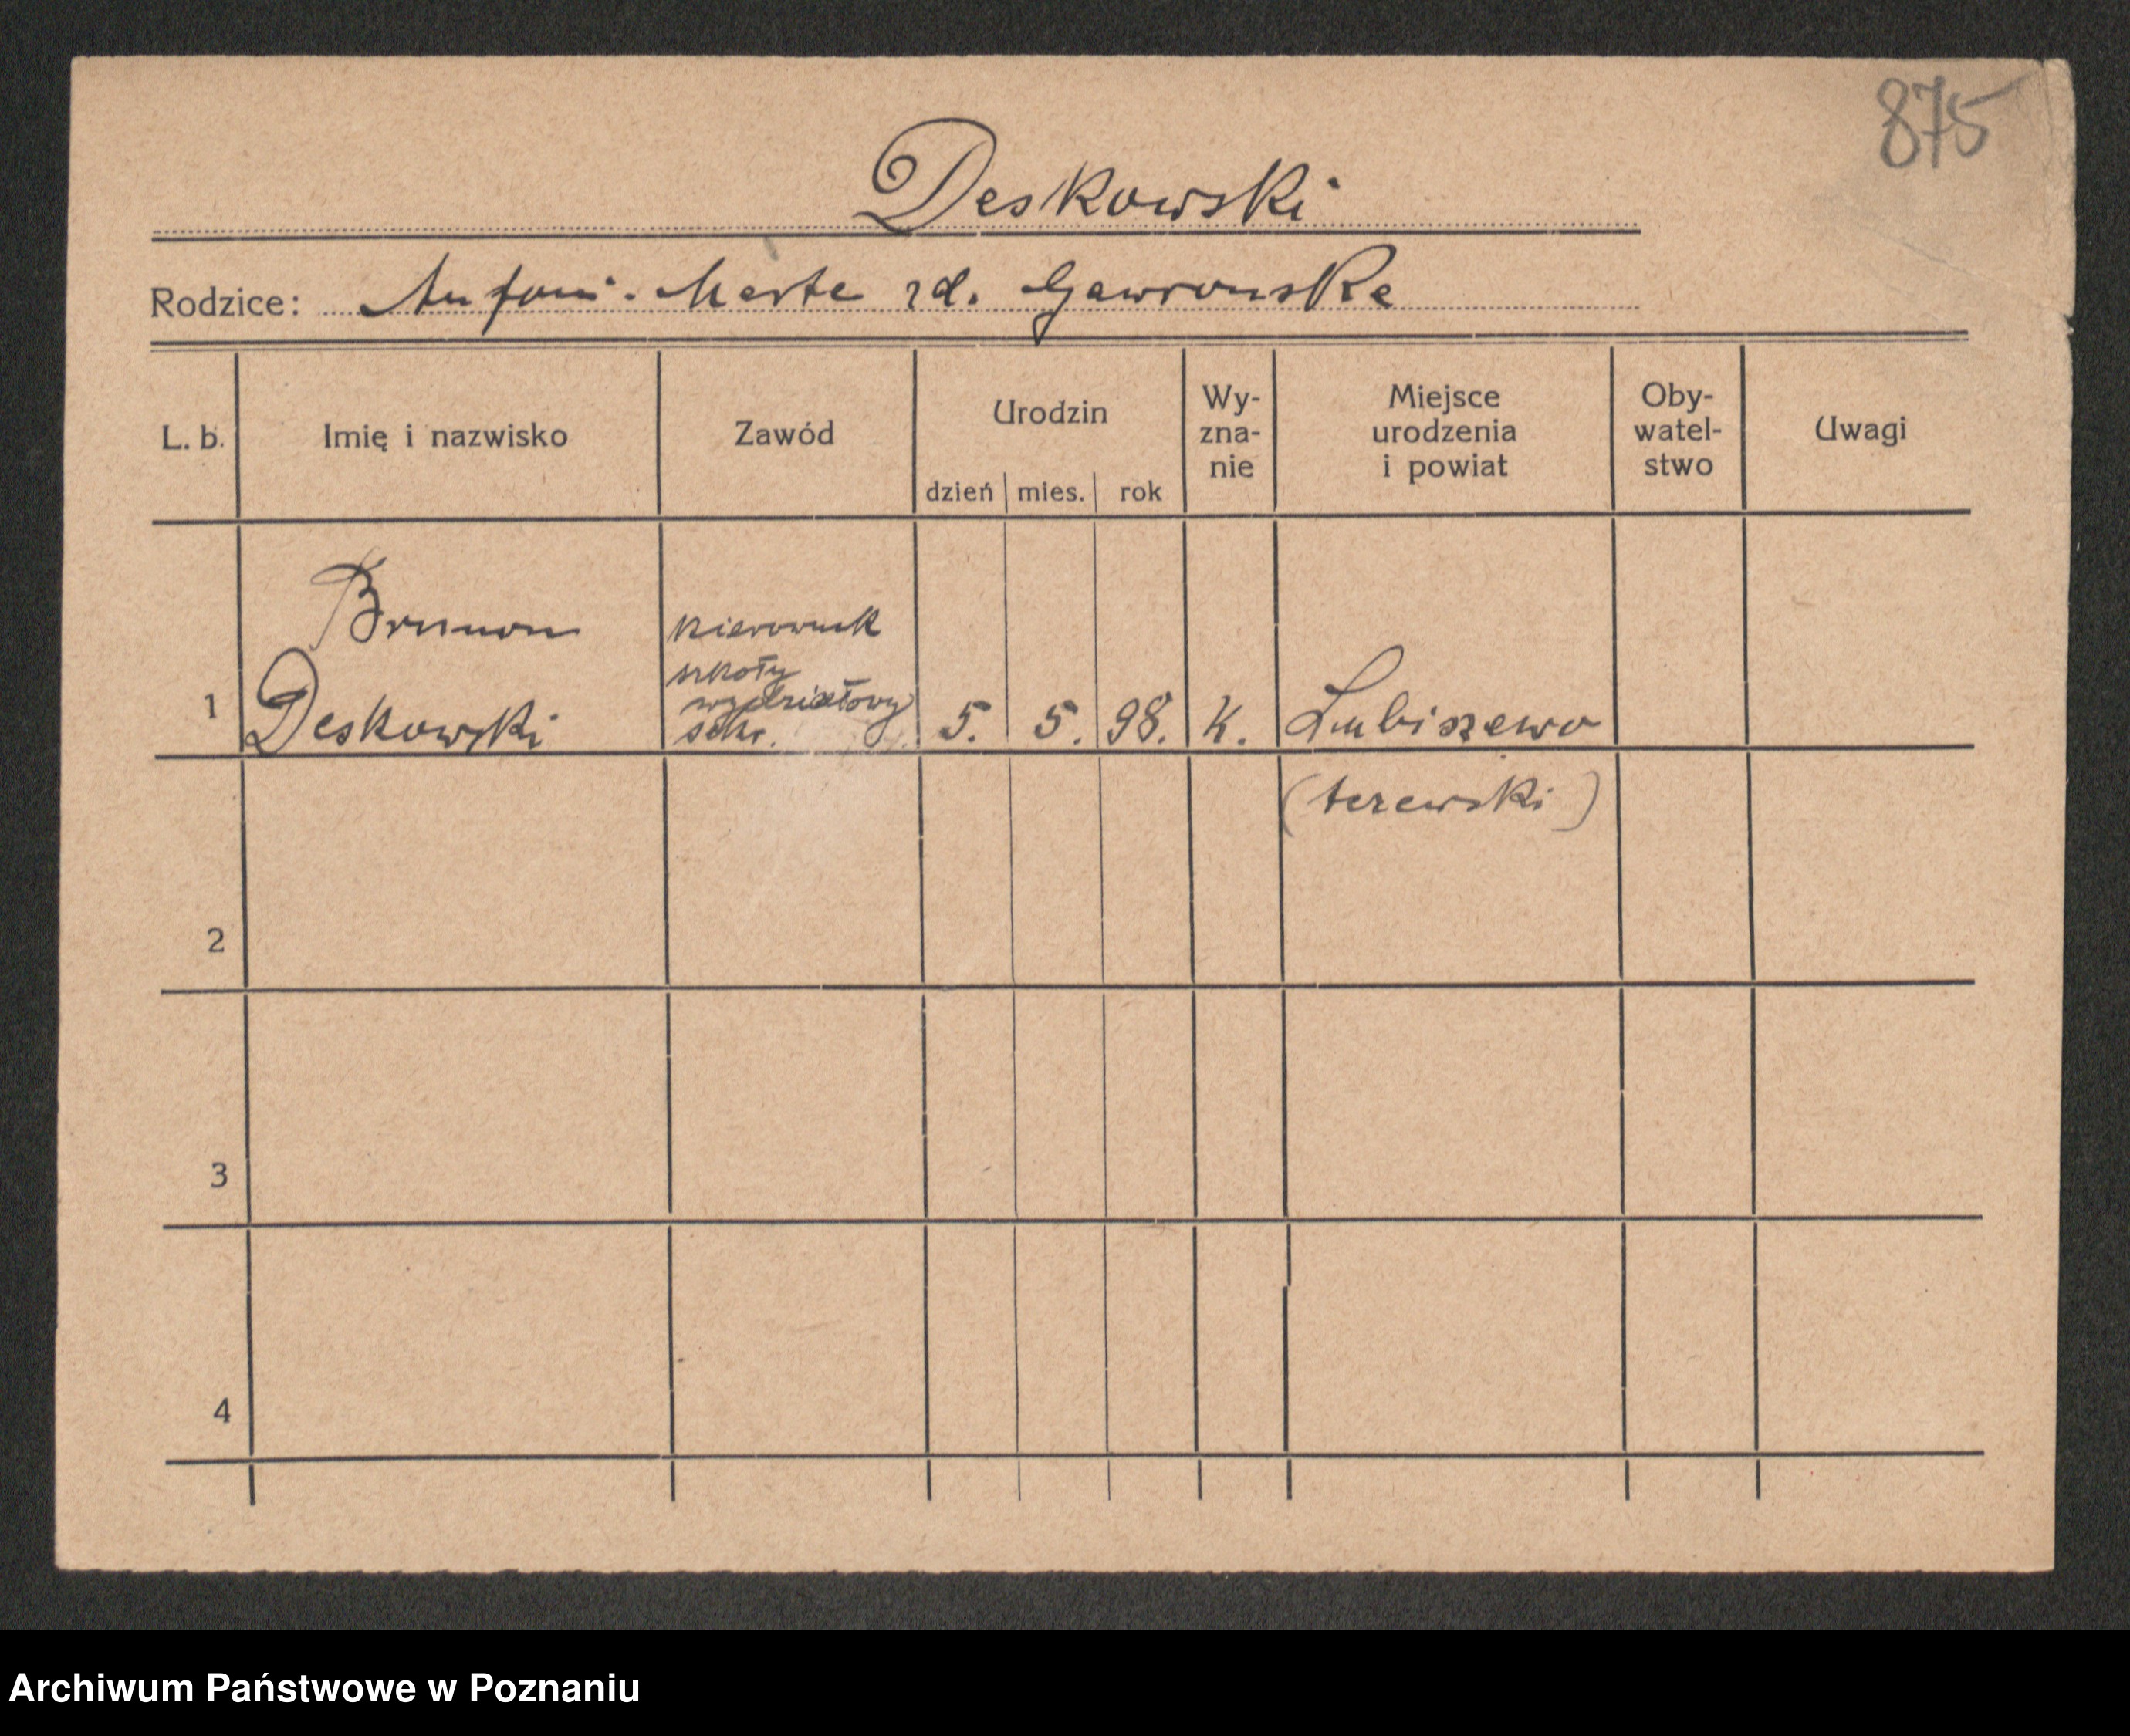 875
Deskowski
Rodzice: Antoni - Marta zd. Gawrońska
L. b.
Imię i nazwisko
Zawód
Urodzin
dzień mies. rok
Wy-
zna-
nie
Miejsce
urodzenia
i powiat
Oby-
watel-
stwo
Uwagi
1
Brunon
Deskowski
kierownik
szkoły
wydziałowy
sekr.
5. 5. 98.
K.
Lubiszewo
(tczewski)
2
3
4
Archiwum Państwowe w Poznaniu